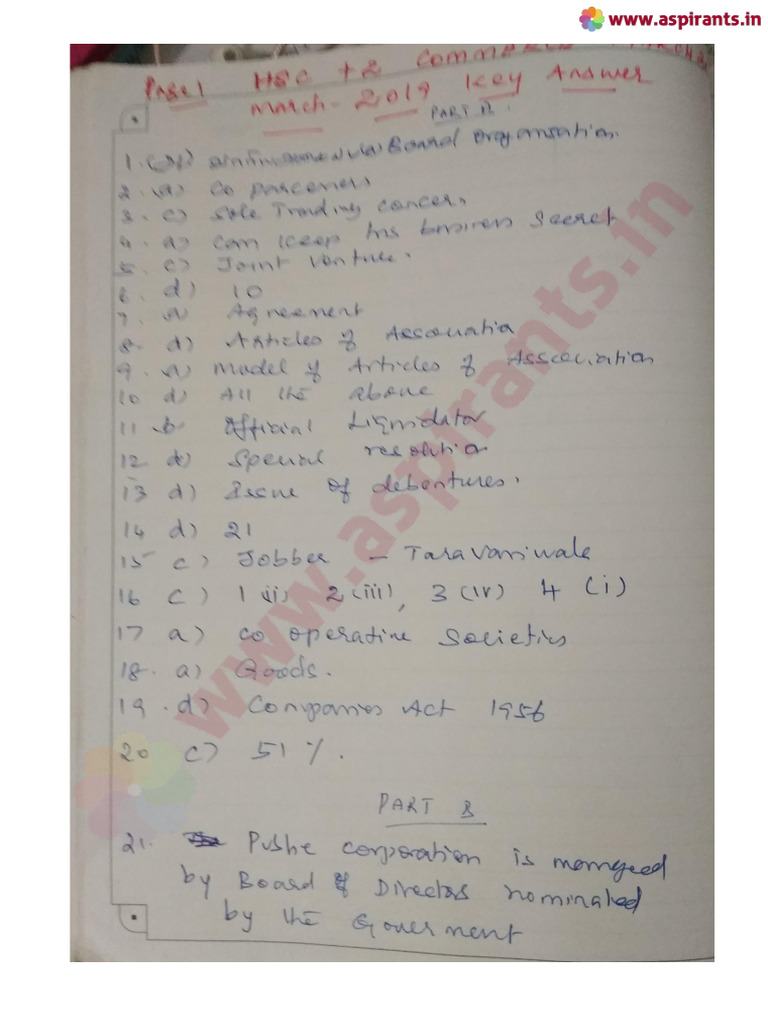 www.aspirants.in
Page 1 HSC +2 Commerce
March-2019 Key Answer
PART
1. Board Organisation.
2. (a) Co parceners
3. c) Sole Trading concern
4. a) Can keep his business Secret
5. c) Joint Venture.
6 d) 10
7. a) Agreement
8. d) Articles of Association
9. a) Model of Articles of Association
10 d) All the above
11 b Official Liquidator
12 Special resolution
13 d) Issue of debentures.
14 d) 21
15 c) Jobber - Taravaniwala
16 c) 1 (ii) 2 (iii), 3 (iv) 4 (i)
17 a) co operative Societies
18. a) Goods.
19. d) Companies Act 1956
20 c) 51%.
PART B
21. corporation is managed
by Board of Directors nominated
by the Goverment
www.aspirants.in